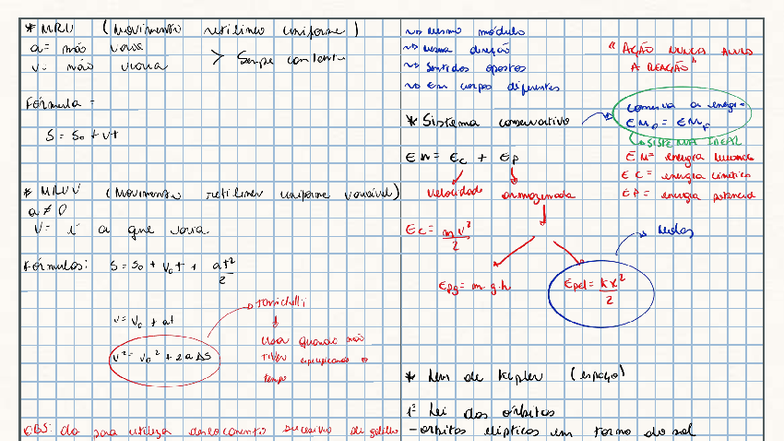 * MRU (movimento retilineo uniforme)
a = não varia
v = não varia > Sempre constante
Fórmula =
S = S0 + vt
* MRUV (movimento retilineo uniforme variável)
a ≠ 0
V = é a que varia.
Fórmulas: S = S0 + V0t + at²/2
v = v0 + at
v² = v0² + 2aΔS
→ torricelli
↓
usar quando não
tiver especificando o
tempo
OBS: da para utilizar deslocamento sucessivo de galileu
~> mesmo módulo
~> mesma direção
~> sentidos opostos
~> em corpos diferentes
" AÇÃO NUNCA ANULA
A REAÇÃO"
* Sistema conservativo
conserva a energia
EM0 = EMF
↳ SISTEMA IDEAL
EM = EC + EP
velocidade armazenada
EM = energia mecanica
EC = energia cinética
EP = energia potencial
EC = mv²/2
→ molas
Epg = m.g.h
Epel = kx²/2
* Leis de Kepler (espaço)
1ª Lei dos órbitas
- orbitas elipticas em torno do sol